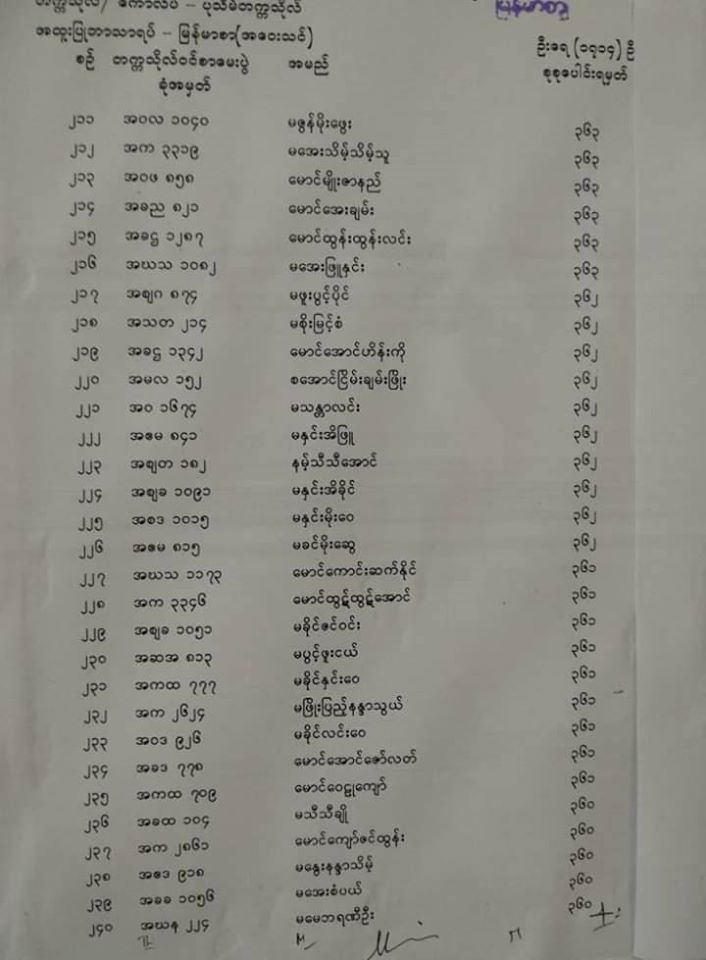 တက္ကသိုလ်/ ကောလိပ် – ပုသိမ်တက္ကသိုလ်
မြန်မာစာ
အထူးပြုဘာသာရပ် – မြန်မာစာ(အဝေးသင်)
ဦးရေ (၁၇၁၄) ဦး
စဉ် တက္ကသိုလ်ဝင်စာမေးပွဲ အမည် စုစုပေါင်းရမှတ်
ခုံအမှတ်
၂၁၁ အဝလ ၁၀၄၀ မဇွန်မိုးဖွေး ၃၆၃
၂၁၂ အက ၃၃၁၉ မအေးသိမ့်သိမ့်သူ ၃၆၃
၂၁၃ အဝဖ ၈၅၈ မောင်မျိုးဇာနည် ၃၆၃
၂၁၄ အခည ၈၂၁ မောင်အေးချမ်း ၃၆၃
၂၁၅ အခဋ္ဌ ၁၂၈၇ မောင်ထွန်းထွန်းလင်း ၃၆၃
၂၁၆ အဃသ ၁၀၈၂ မအေးဖြူနှင်း ၃၆၃
၂၁၇ အဈဂ ၈၇၄ မဖူးပွင့်ပိုင် ၃၆၂
၂၁၈ အသတ ၂၁၄ မစိုးမြင့်စံ ၃၆၂
၂၁၉ အခဋ္ဌ ၁၃၄၂ မောင်အောင်ဟိန်းကို ၃၆၂
၂၂၀ အမလ ၁၅၂ စအောင်ငြိမ်းချမ်းဖြိုး ၃၆၂
၂၂၁ အဝ ၁၆၇၄ မသန္တာလင်း ၃၆၂
၂၂၂ အဓမ ၈၄၁ မနှင်းအိဖြူ ၃၆၂
၂၂၃ အဈတ ၁၈၂ နမ့်သီသီအောင် ၃၆၂
၂၂၄ အဈခ ၁၀၉၁ မနှင်းအိခိုင် ၃၆၂
၂၂၅ အစဒ ၁၀၁၅ မနှင်းမိုးဝေ ၃၆၂
၂၂၆ အဓမ ၈၁၅ မခင်မိုးဆွေ ၃၆၂
၂၂၇ အဃသ ၁၁၇၃ မောင်ကောင်းဆက်နိုင် ၃၆၁
၂၂၈ အက ၃၃၄၆ မောင်ထွဋ်ထွဋ်အောင် ၃၆၁
၂၂၉ အဈခ ၁၀၅၁ မခိုင်ဇင်ဝင်း ၃၆၁
၂၃၀ အဆအ ၈၁၃ မပွင့်ဖူးငယ် ၃၆၁
၂၃၁ အကထ ၇၇၇ မခိုင်နှင်းဝေ ၃၆၁
၂၃၂ အက ၂၆၂၄ မဖြိုးပြည့်နန္ဒာသွယ် ၃၆၁
၂၃၃ အဝဒ ၉၂၆ မခိုင်လင်းဝေ ၃၆၁
၂၃၄ အခဒ ၇၇၈ မောင်အောင်ဇော်လတ် ၃၆၁
၂၃၅ အကထ ၇၀၉ မောင်ဝေဠုကျော် ၃၆၁
၂၃၆ အခထ ၁၀၄ မသီသီချို ၃၆၀
၂၃၇ အက ၂၈၆၁ မောင်ကျော်ဇင်ထွန်း ၃၆၀
၂၃၈ အဓဒ ၉၁၈ မနွေးနန္ဒာသိမ့် ၃၆၀
၂၃၉ အခခ ၁၀၅၆ မအေးစံပယ် ၃၆၀
၂၄၀ အဃန ၂၂၄ မမေဘရဏီဦး ၃၆၀